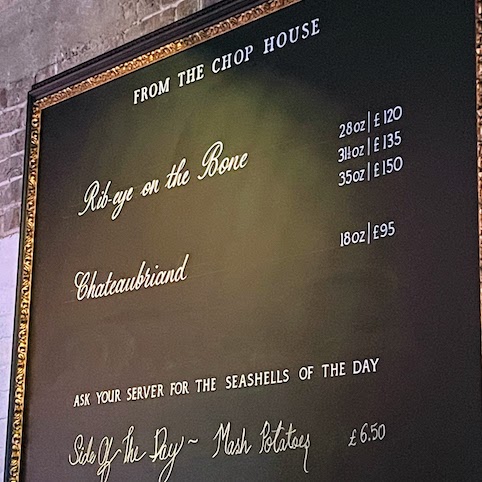 FROM THE CHOP HOUSE
Rib-eye on the Bone
28oz | £120
31½oz | £135
35oz | £150
Chateaubriand 18oz | £95
ASK YOUR SERVER FOR THE SEASHELLS OF THE DAY
Side Of The Day ~ Mash Potatoes £6.50